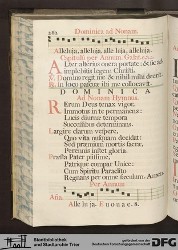 Dominica ad Nonam
Alleluja, alleluja, alle luja, alleluja.
Capitulum per Annum. Galat. 6.
Alter alterius onera portate: & sic ad-
implebitis legem Christi.
Dominus regit me & nihil mihi deerit.
In loco pascuae ibi me collocavit.
DOMINICA
Ad Nonam Hymnus.
Rerum Deus tenax vigor,
Immotus in te permanens:
Lucis diurnae tempora
Successibus determinans.
Largire clarum vespere,
Quo vita nusquam decidat:
Sed praemium mortis sacrae,
Perennis instet gloria.
Praesta Pater piissime,
Patrique compar Unice:
Cum Spiritu Paraclito
Regnans per omne saeculum. Amen.
Per Annum
Alle lu ja. Euouae.
Stadtbibliothek
und Stadtarchiv Trier
gefördert durch
DFG